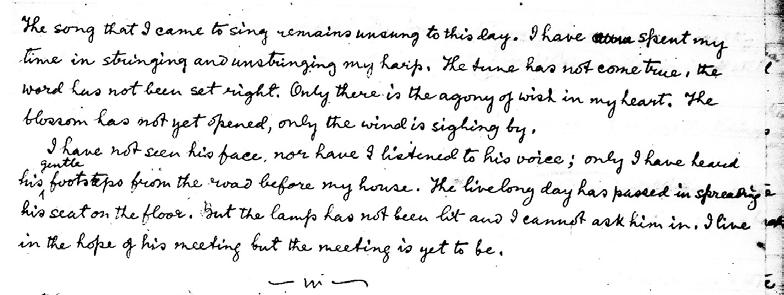 The song that I came to sing remains unsung to this day. I have spent my
time in stringing and unstringing my harp. The tune has not come true, the
word has not been set right. Only there is the agony of wish in my heart. The
blossom has not yet opened, only the wind is sighing by.
I have not seen his face, nor have I listened to his voice; only I have heard
gentle
his footsteps from the road before my house. The livelong day has passed in spreading
his seat on the floor. But the lamp has not been lit and I cannot ask him in. I live
in the hope of his meeting but the meeting is yet to be.